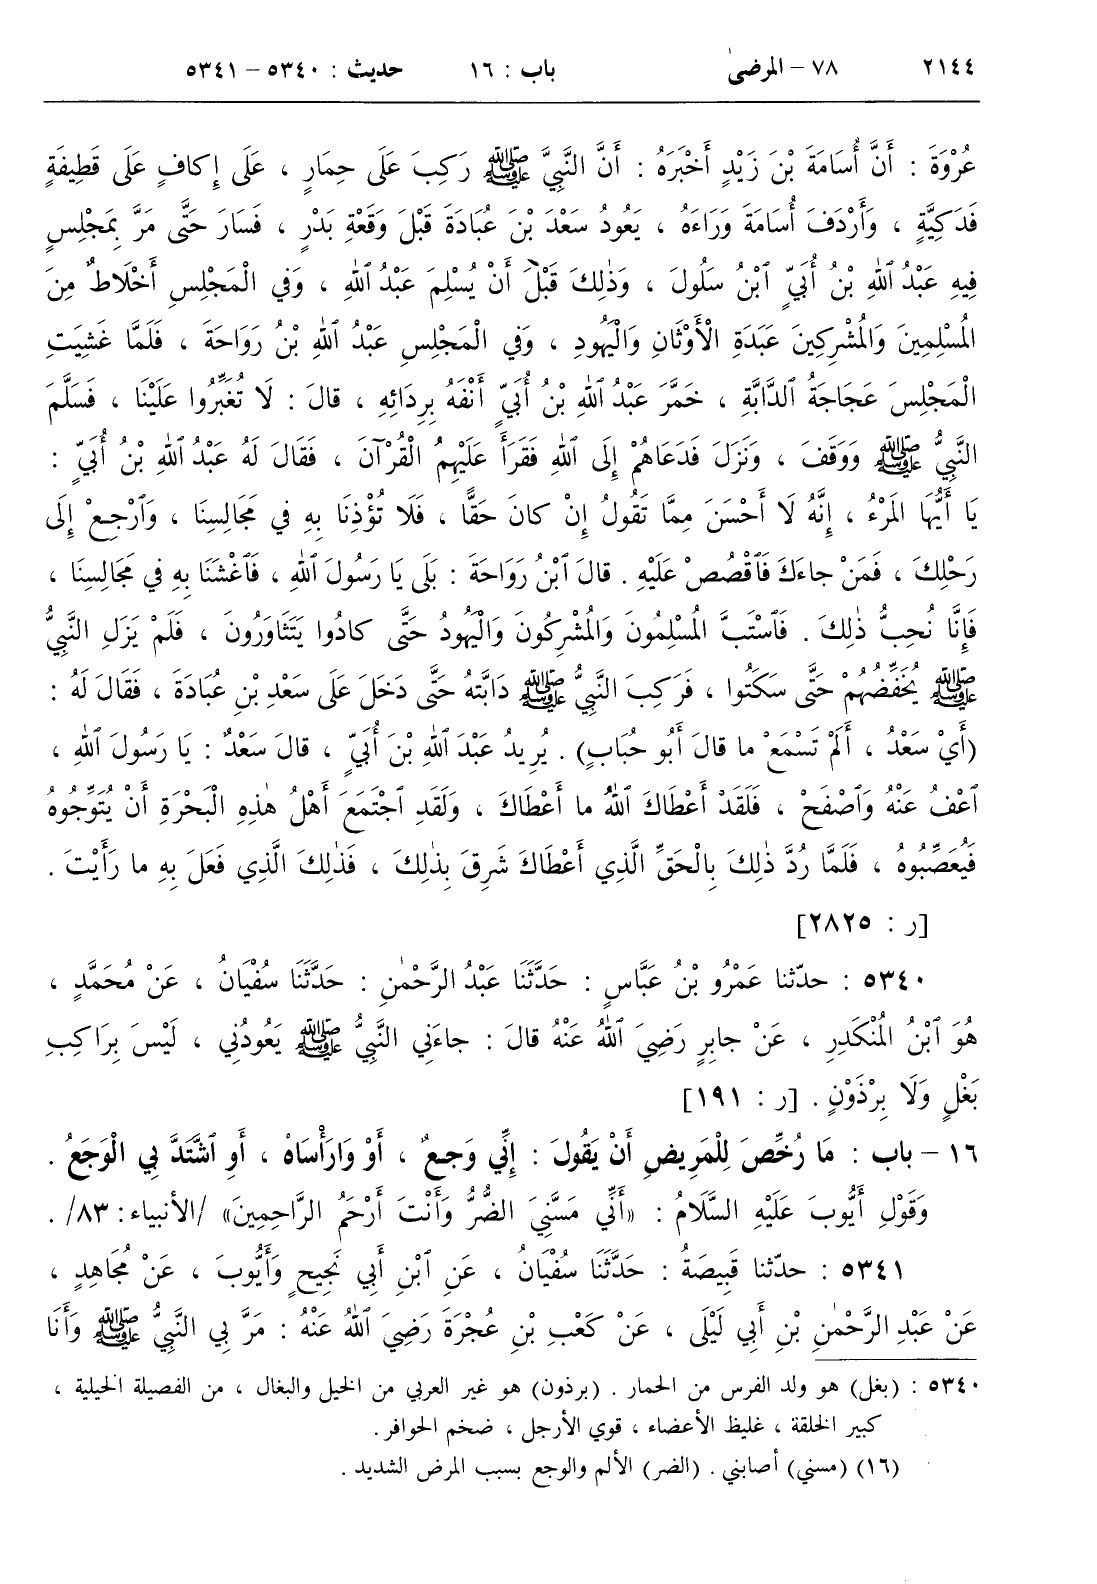 ٢١٤٤ ٧٨ – المرضىٰ باب : ١٦ حديث : ٥٣٤٠ – ٥٣٤١
عُرْوَةَ : أَنَّ أُسَامَةَ بْنَ زَيْدٍ أَخْبَرَهُ : أَنَّ النَّبِيَّ ﷺ رَكِبَ عَلَى حِمَارٍ ، عَلَى إِكافٍ عَلَى قَطِيفَةٍ
فَدَكِيَّةٍ ، وَأَرْدَفَ أُسَامَةَ وَرَاءَهُ ، يَعُودُ سَعْدَ بْنَ عُبَادَةَ قَبْلَ وَقْعَةِ بَدْرٍ ، فَسَارَ حَتَّى مَرَّ بِمَجْلِسٍ
فِيهِ عَبْدُ ٱللهِ بْنُ أُبَيٍّ ٱبْنُ سَلُولَ ، وَذٰلِكَ قَبْلَ أَنْ يُسْلِمَ عَبْدُ ٱللهِ ، وَفِي الْمَجْلِسِ أَخْلَاطٌ مِنَ
المُسْلِمِينَ وَالمُشْرِكِينَ عَبَدَةِ الْأَوْثَانِ وَالْيَهُودِ ، وَفِي الْمَجْلِسِ عَبْدُ ٱللهِ بْنُ رَوَاحَةَ ، فَلَمَّا غَشِيَتِ
الْمَجْلِسَ عَجَاجَةُ ٱلدَّابَّةِ ، خَمَّرَ عَبْدُ ٱللهِ بْنُ أُبَيٍّ أَنْفَهُ بِرِدَائِهِ ، قالَ : لَا تُغَبِّرُوا عَلَيْنَا ، فَسَلَّمَ
النَّبِيُّ ﷺ وَوَقَفَ ، وَنَزَلَ فَدَعَاهُمْ إِلَى ٱللهِ فَقَرَأَ عَلَيْهِمُ الْقُرْآنَ ، فَقَالَ لَهُ عَبْدُ ٱللهِ بْنُ أُبَيٍّ :
يَا أَيُّهَا المَرْءُ ، إِنَّهُ لَا أَحْسَنَ مِمَّا تَقُولُ إِنْ كانَ حَقًّا ، فَلَا تُؤْذِنَا بِهِ فِي مَجَالِسِنَا ، وَٱرْجِعْ إِلَى
رَحْلِكَ ، فَمَنْ جاءَكَ فَٱقْصُصْ عَلَيْهِ . قالَ ٱبْنُ رَوَاحَةَ : بَلَى يَا رَسُولَ ٱللهِ ، فَٱغْشَنَا بِهِ فِي مَجَالِسِنَا ،
فَإِنَّا نُحِبُّ ذٰلِكَ . فَٱسْتَبَّ المُسْلِمُونَ وَالمُشْرِكُونَ وَالْيَهُودُ حَتَّى كادُوا يَتَثَاوَرُونَ ، فَلَمْ يَزَلِ النَّبِيُّ
ﷺ يُخَفِّضُهُمْ حَتَّى سَكَتُوا ، فَرَكِبَ النَّبِيُّ ﷺ دَابَّتَهُ حَتَّى دَخَلَ عَلَى سَعْدِ بْنِ عُبَادَةَ ، فَقَالَ لَهُ :
(أَيْ سَعْدُ ، أَلَمْ تَسْمَعْ ما قالَ أَبُو حُبَابٍ) . يُرِيدُ عَبْدَ ٱللهِ بْنَ أُبَيٍّ ، قالَ سَعْدٌ : يَا رَسُولَ ٱللهِ ،
ٱعْفُ عَنْهُ وَٱصْفَحْ ، فَلَقَدْ أَعْطَاكَ ٱللهُ ما أَعْطَاكَ ، وَلَقَدِ ٱجْتَمَعَ أَهْلُ هٰذِهِ الْبَحْرَةِ أَنْ يُتَوِّجُوهُ
فَيُعَصِّبُوهُ ، فَلَمَّا رُدَّ ذٰلِكَ بِالْحَقِّ الَّذِي أَعْطَاكَ شَرِقَ بِذٰلِكَ ، فَذٰلِكَ الَّذِي فَعَلَ بِهِ ما رَأَيْتَ .
[ر : ٢٨٢٥]
٥٣٤٠ : حدّثنا عَمْرُو بْنُ عَبَّاسٍ : حَدَّثَنَا عَبْدُ الرَّحْمٰنِ : حَدَّثَنَا سُفْيَانُ ، عَنْ مُحَمَّدٍ ،
هُوَ ٱبْنُ المُنْكَدِرِ ، عَنْ جابِرٍ رَضِيَ ٱللهُ عَنْهُ قالَ : جاءَنِي النَّبِيُّ ﷺ يَعُودُنِي ، لَيْسَ بِرَاكِبِ
بَغْلٍ وَلَا بِرْذَوْنٍ . [ر : ١٩١]
١٦ – باب : مَا رُخِّصَ لِلْمَرِيضِ أَنْ يَقُولَ : إِنِّي وَجِعٌ ، أَوْ وَارَأْسَاهْ ، أَوِ ٱشْتَدَّ بِي الْوَجَعُ .
وَقَوْلِ أَيُّوبَ عَلَيْهِ السَّلَامُ : «أَنِّي مَسَّنِيَ الضُّرُّ وَأَنْتَ أَرْحَمُ الرَّاحِمِينَ» /الأنبياء: ٨٣/ .
٥٣٤١ : حدّثنا قَبِيصَةُ : حَدَّثَنَا سُفْيَانُ ، عَنِ ٱبْنِ أَبِي نَجِيحٍ وَأَيُّوبَ ، عَنْ مُجَاهِدٍ ،
عَنْ عَبْدِ الرَّحْمٰنِ بْنِ أَبِي لَيْلَى ، عَنْ كَعْبِ بْنِ عُجْرَةَ رَضِيَ ٱللهُ عَنْهُ : مَرَّ بِي النَّبِيُّ ﷺ وَأَنَا
٥٣٤٠ : (بغل) هو ولد الفرس من الحمار . (برذون) هو غير العربي من الخيل والبغال ، من الفصيلة الخيلية ،
كبير الخلقة ، غليظ الأعضاء ، قوي الأرجل ، ضخم الحوافر .
(١٦) (مسني) أصابني . (الضر) الألم والوجع بسبب المرض الشديد .